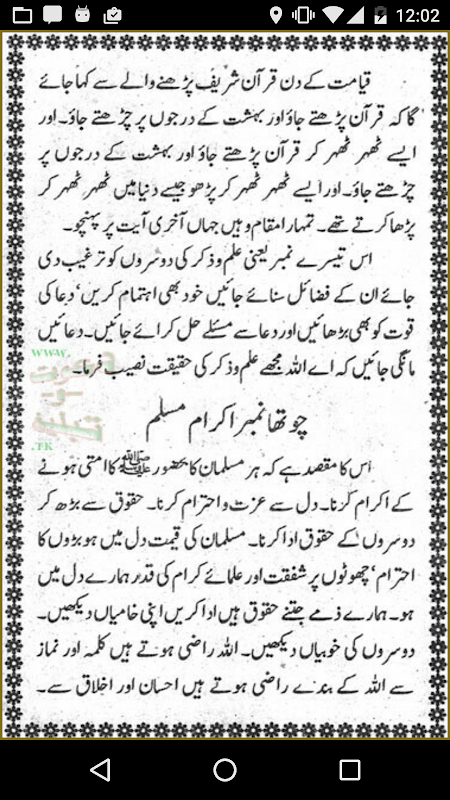 12:02
قیامت کے دن قرآن شریف پڑھنے والے سے کہا جائے
گا کہ قرآن پڑھتے جاؤ اور بہشت کے درجوں پر چڑھتے جاؤ۔ اور
ایسے ٹھہر ٹھہر کر قرآن پڑھتے جاؤ اور بہشت کے درجوں پر
چڑھتے جاؤ۔ اور ایسے ٹھہر ٹھہر کر پڑھو جیسے دنیا میں ٹھہر ٹھہر کر
پڑھا کرتے تھے۔ تمہارا مقام وہیں جہاں آخری آیت پر پہنچو۔
اس تیسرے نمبر یعنی علم و ذکر کی دوسروں کو ترغیب دی
جائے ان کے فضائل سنائے جائیں خود بھی اہتمام کریں' دعا کی
قوت کو بھی بڑھائیں اور دعا سے مسئلے حل کرائے جائیں۔ دعائیں
مانگی جائیں کہ اے اللہ مجھے علم و ذکر کی حقیقت نصیب فرما۔
www.
دعوت
و
تبلیغ
.TK
چوتھا نمبر اکرام مسلم
اس کا مقصد ہے کہ ہر مسلمان کا بحضور ﷺ کا امتی ہونے
کے اکرام کرنا۔ دل سے عزت و احترام کرنا۔ حقوق سے بڑھ کر
دوسروں کے حقوق ادا کرنا۔ مسلمان کی قیمت دل میں ہو بڑوں کا
احترام' چھوٹوں پر شفقت اور علمائے کرام کی قدر ہمارے دل میں
ہو۔ ہمارے ذمے جتنے حقوق ہیں ادا کریں اپنی خامیاں دیکھیں۔
دوسروں کی خوبیاں دیکھیں۔ اللہ راضی ہوتے ہیں کلمہ اور نماز
سے اللہ کے بندے راضی ہوتے ہیں احسان اور اخلاق سے۔